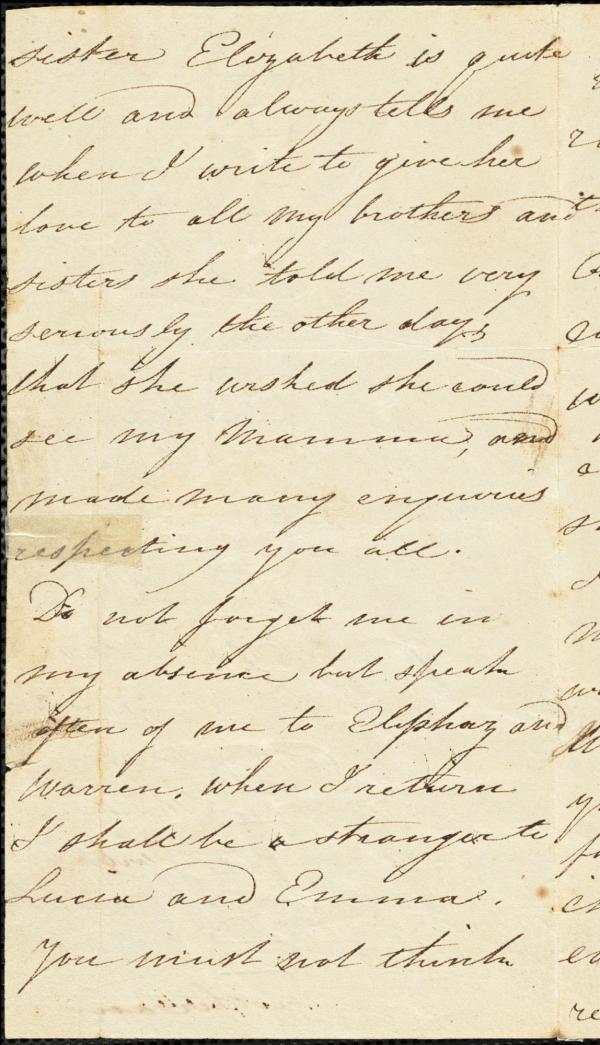 sister Elizabeth is quite
well and always tells me
when I write to give her
love to all my brothers and
sisters she told me very
seriously the other day,
that she wished she could
see my Mamma, and
made many enquiries
respecting you all.
Do not forget me in
my absence but speak
often of me to Eliphaz and
Warren. when I return
I shall be a stranger to
Lucia and Emma.
You must not think